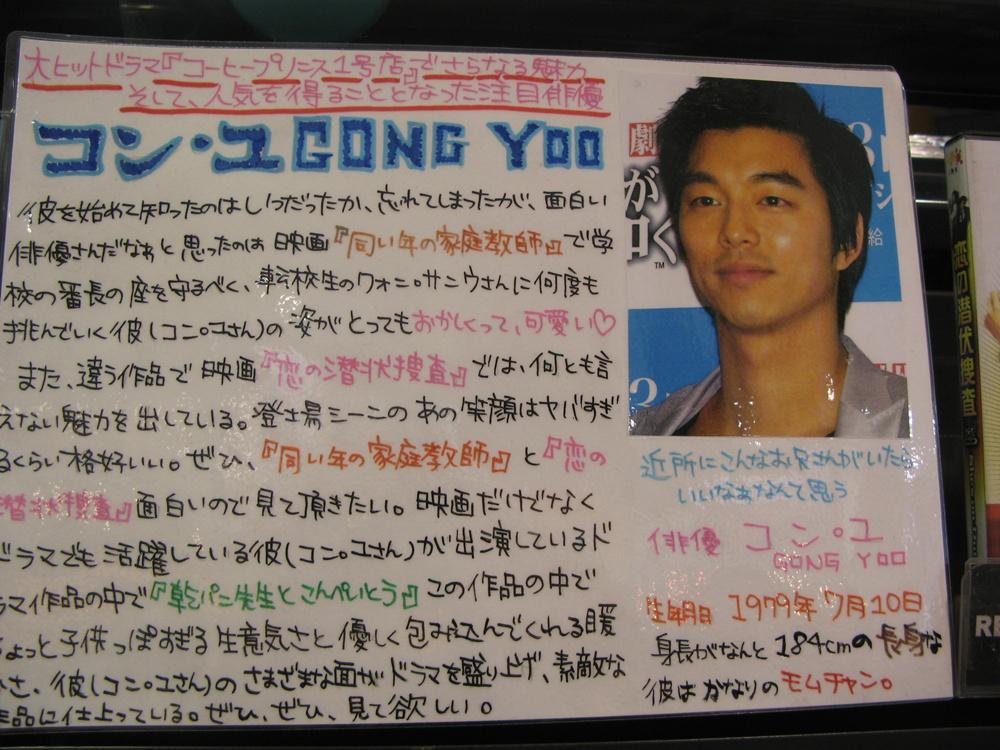 大ヒットドラマ『コーヒープリンス1号店』でさらなる魅力
そして、人気を得ることとなった注目俳優
コン・ユ GONG YOO
彼を始めて知ったのはいつだったか、忘れてしまったが、面白い
俳優さんだなぁと思ったのは映画『同い年の家庭教師』で学
校の番長の座を守るべく、転校生のクォン・サンウさんに何度も
挑んでいく彼(コン・ユさん)の姿がとってもおかしくって、可愛い♡
また、違う作品で映画『恋の潜状捜査』では、何とも言
えない魅力を出している。登場シーンのあの笑顔はヤバすぎ
るくらい格好いい。ぜひ、『同い年の家庭教師』と『恋の
潜状捜査』面白いので見て頂きたい。映画だけでなく
ドラマでも活躍している彼(コン・ユさん)が出演しているド
ラマ作品の中で『乾パン先生とこんぺいとう』この作品の中で
ちょっと子供っぽすぎる生意気さと優しく包み込んでくれる暖
かさ、彼(コン・ユさん)のさまざまな面がドラマを盛り上げ、素敵な
作品に仕上っている。ぜひ、ぜひ、見て欲しい。
劇
がく
TM
3
シ
給
近所にこんなお兄さんがいたら
いいなぁなんて思う
俳優 コン・ユ
GONG YOO
生年月日 1979年7月10日
身長がなんと184cmの長身な
彼はかなりのモムチャン。
恋の潜伏捜査
RE